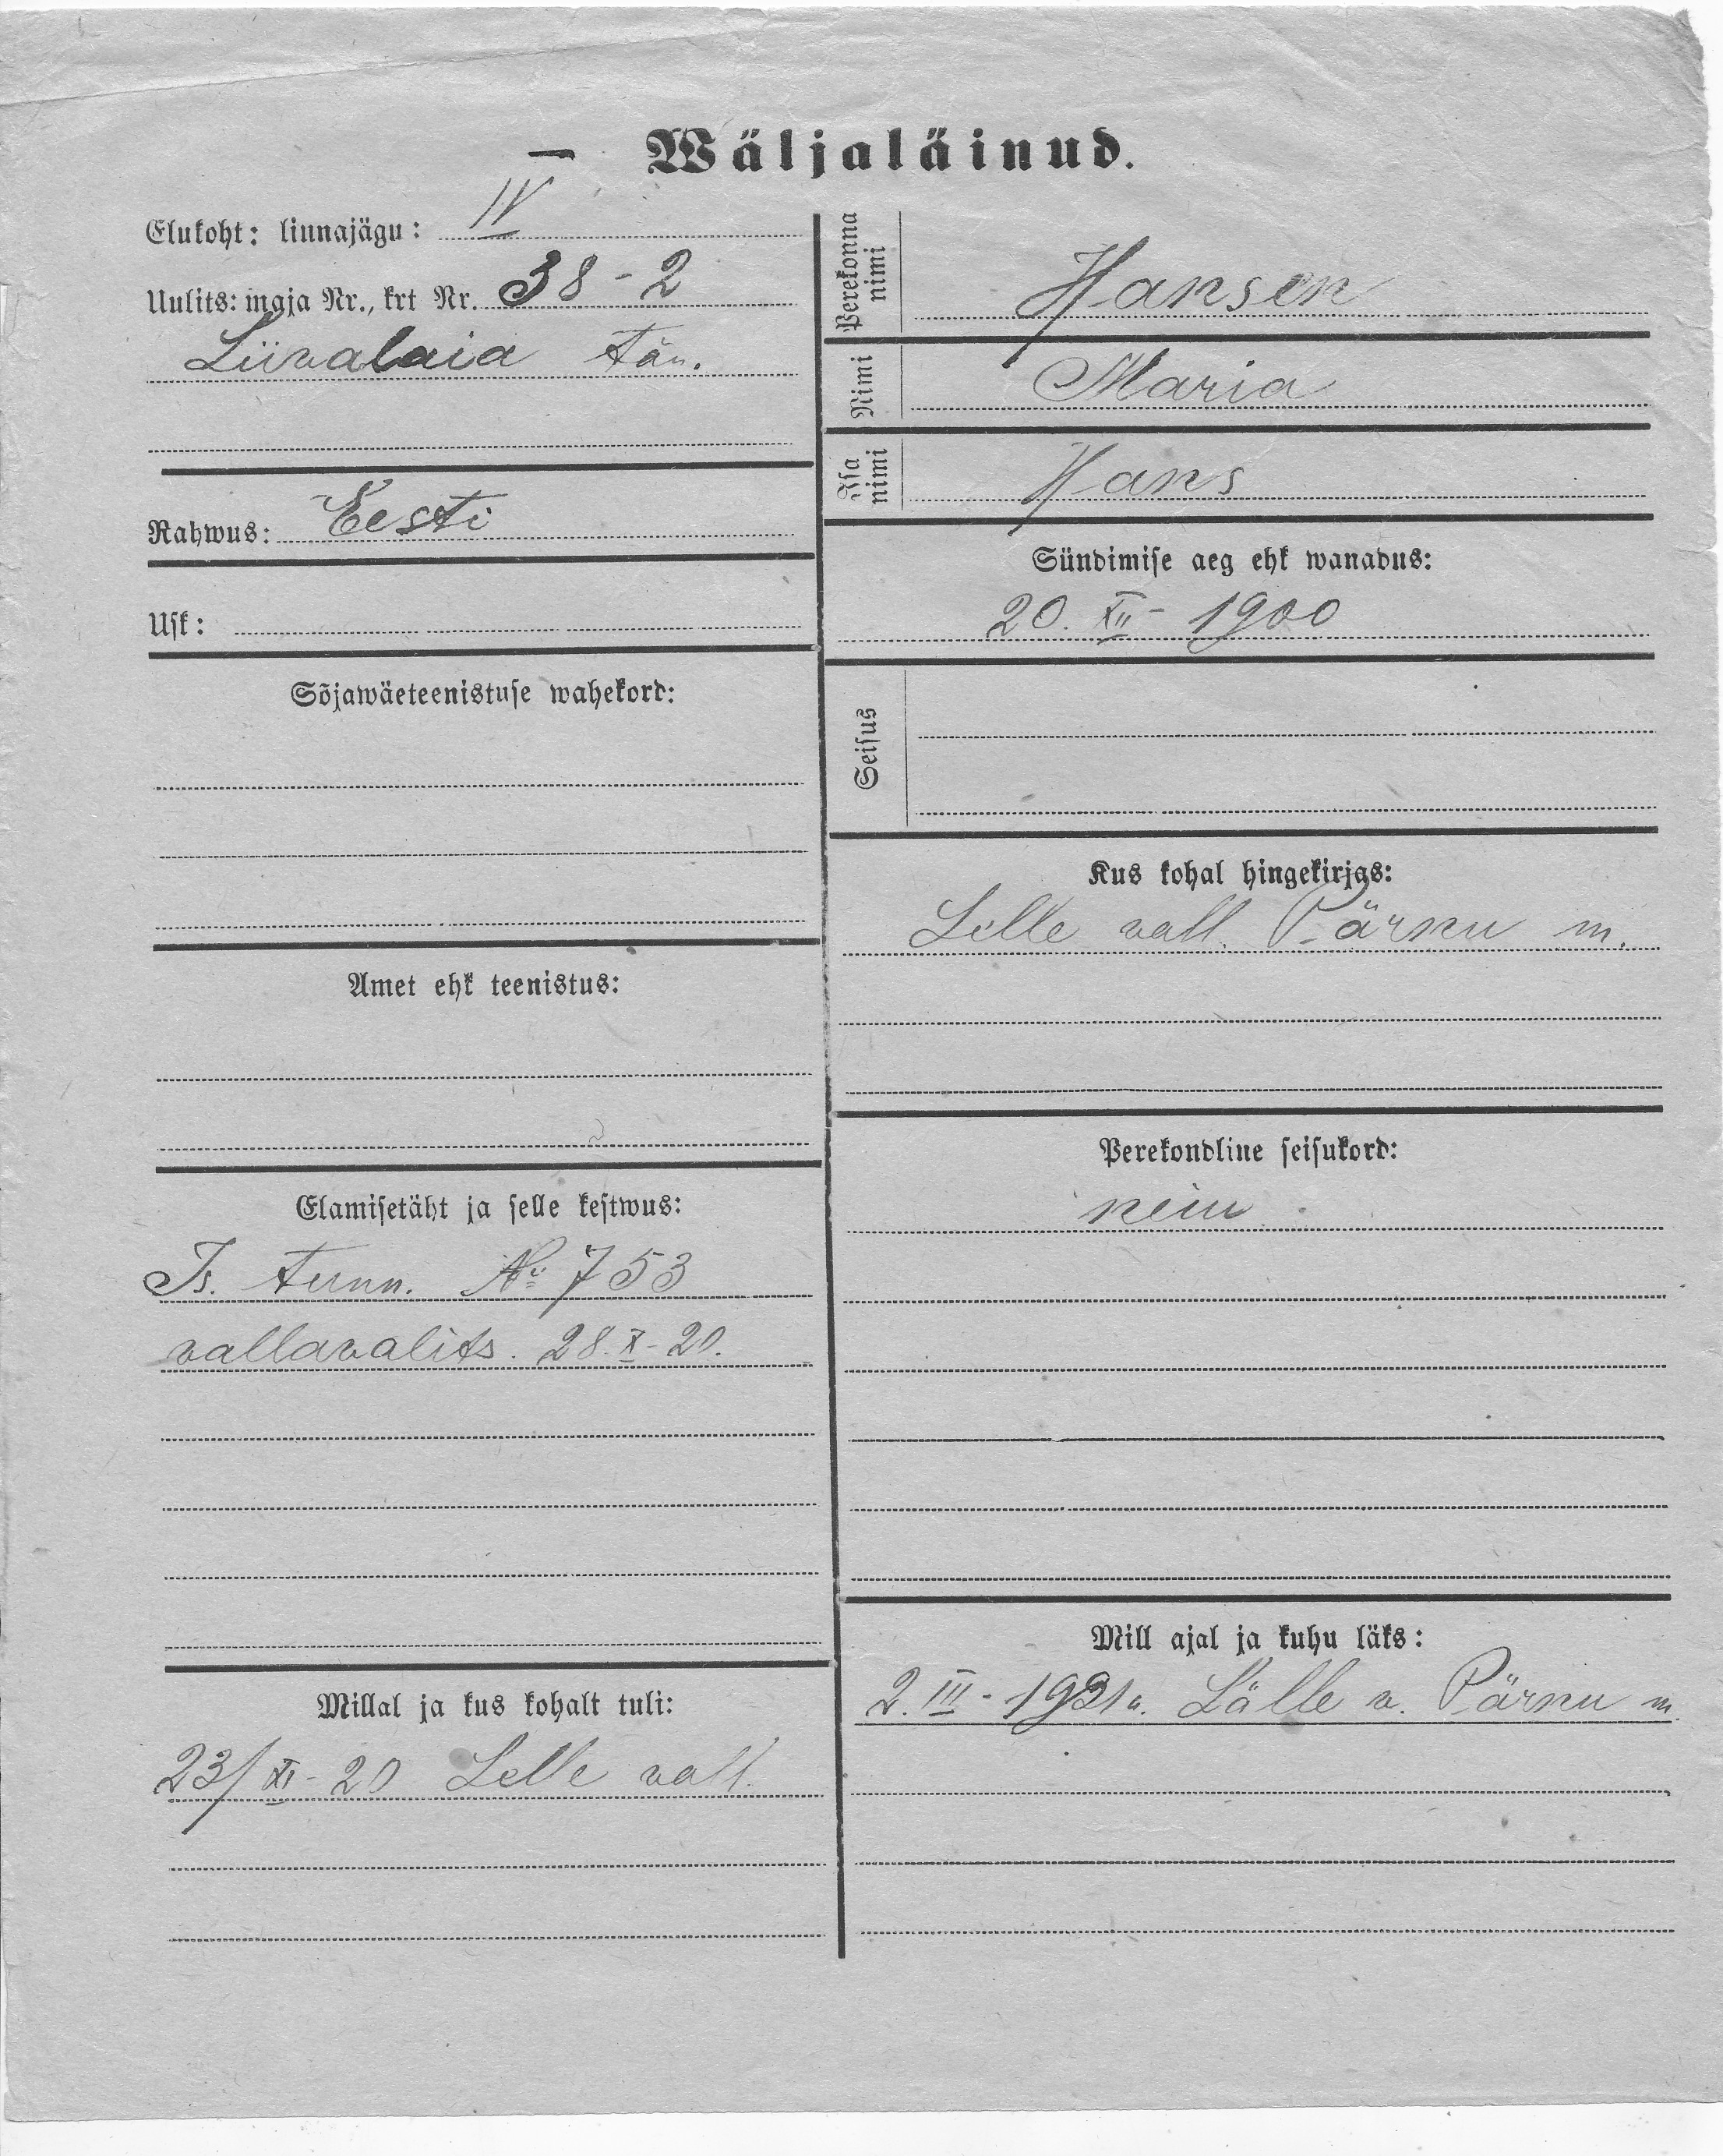 Wäljaläinud.
Elukoht: linnajagu: IV
Uulits: maja Nr., krt Nr. 38-2
Liivalaia tän.
Rahwus: Eesti
Usk:
Sõjawäeteenistuse wahekord:
Amet ehk teenistus:
Elamisetäht ja selle kestwus:
Is. tunn. № 753
vallavalits. 28.X-20.
Millal ja kus kohalt tuli:
23/XI-20 Lelle vall.
Perekonna nimi Hansen
Nimi Maria
Isa nimi Hans
Sündimise aeg ehk wanadus:
20. XII - 1900
Seisus
Kus kohal hingekirjas:
Lelle vall. Pärnu m.
Perekondline seisukord:
neiu
Mill ajal ja kuhu läks:
2. III - 1921 a. Lälle v. Pärnu m.